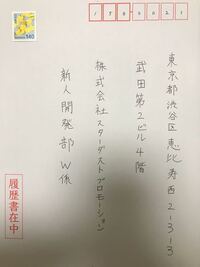 150-0021
東京都渋谷区恵比寿西2-3-3
武田第2ビル4階
株式会社スターダストプロモーション
新人開発部W係
履歴書在中
140